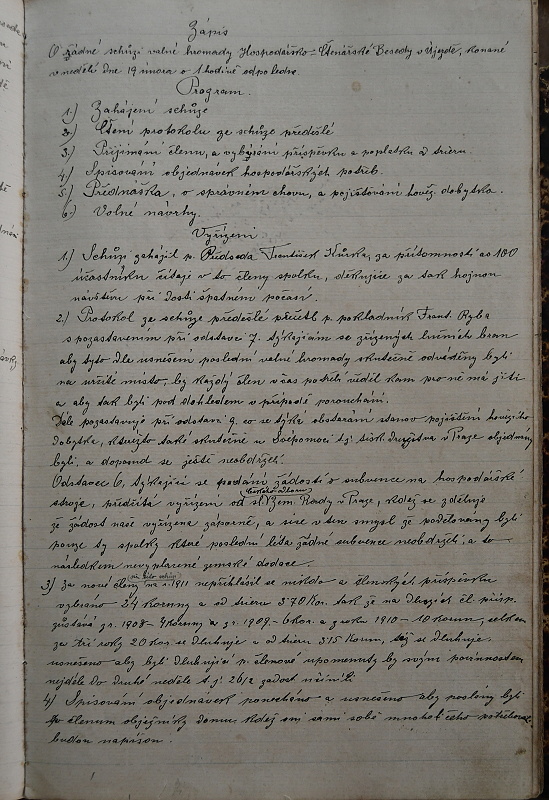 Zápis
O řádné schůzi valné hromady Hospodářsko-Čtenářské Besedy v Újezdě, konané
v neděli dne 19 února o 1 hodině odpoledne.
Program.
1.) Zahájení schůze
2.) Čtení protokolu ze schůze předešlé
3.) Přijímání členu, a vybýrání příspěvku a poplatku z trieru.
4.) Spisování objednávek hospodářských potřeb.
5.) Přednáška, o správném chovu, a pojišťování hověz. dobytka.
6.) Volné návrhy.
Vyřízení
1.) Schůzi zahájil p. Předseda František Kůrka, za přítomnosti as 100
účastníku čítaje v to členy spolku, děkujíce za tak hojnou
návštěvu při dosti špatném počasí.
2.) Protokol ze schůze předešlé přečetl p. pokladník Frant. Ryba
s pozastavením při odstavci 7. týkajícím se zřízených lučních bran
aby tyto dle usnešení poslední valné hromady skutečně odváděny byli
na určité místo, by každý člen včas potřeby věděl kam pro ně má jíti
a aby tak byli pod dohledem v případě porouchání.
Dále pozastavuje při odstavci 9. co se týká obstarání stanov pojištění hovězího
dobytka, kteréžto také skutečně u Svépomoci t.j. tisk. družstva v Praze objednány
byli, a doposud se ještě neobdrželi.
Odstavec 6, týkající se podání žádosti o subvence na hospodářské
stroje, předčítá vyřízení od sl. Zem. Rady v Praze, kdež se zděluje
že žádost naše vyřízena záporně, a sice v ten smysl že podělovány byli
pouze ty spolky které poslední léta žádné subvence neobdrželi, a to
následkem nevyplacené zemské dotace.
3) Za nové členy na r. 1911 nepřihlásil se nikdo a členských příspěvku
vybráno 24 korun a od trieru 3·70 Kor. tak že na dluzích čl. přísp.
zůstává z r. 1908 - 4 koruny a z r. 1909 - 6 kor. a z roku 1910 - 10 korun, celkem
za tři roky 20 kor. se dluhuje a od trieru 3·15 Korun, též se dluhuje;
usnešeno aby byli dlužující p. členové upomenuty by svým povinnostem
nejdéle do druhé neděle t.j. 26/2 zadost učinili
4) Spisování objednávek ponecháno a usnešeno aby poslány byli
členum objednávky domu, kdež oni sami sobě množství čeho potřebovat
budou napíšou.